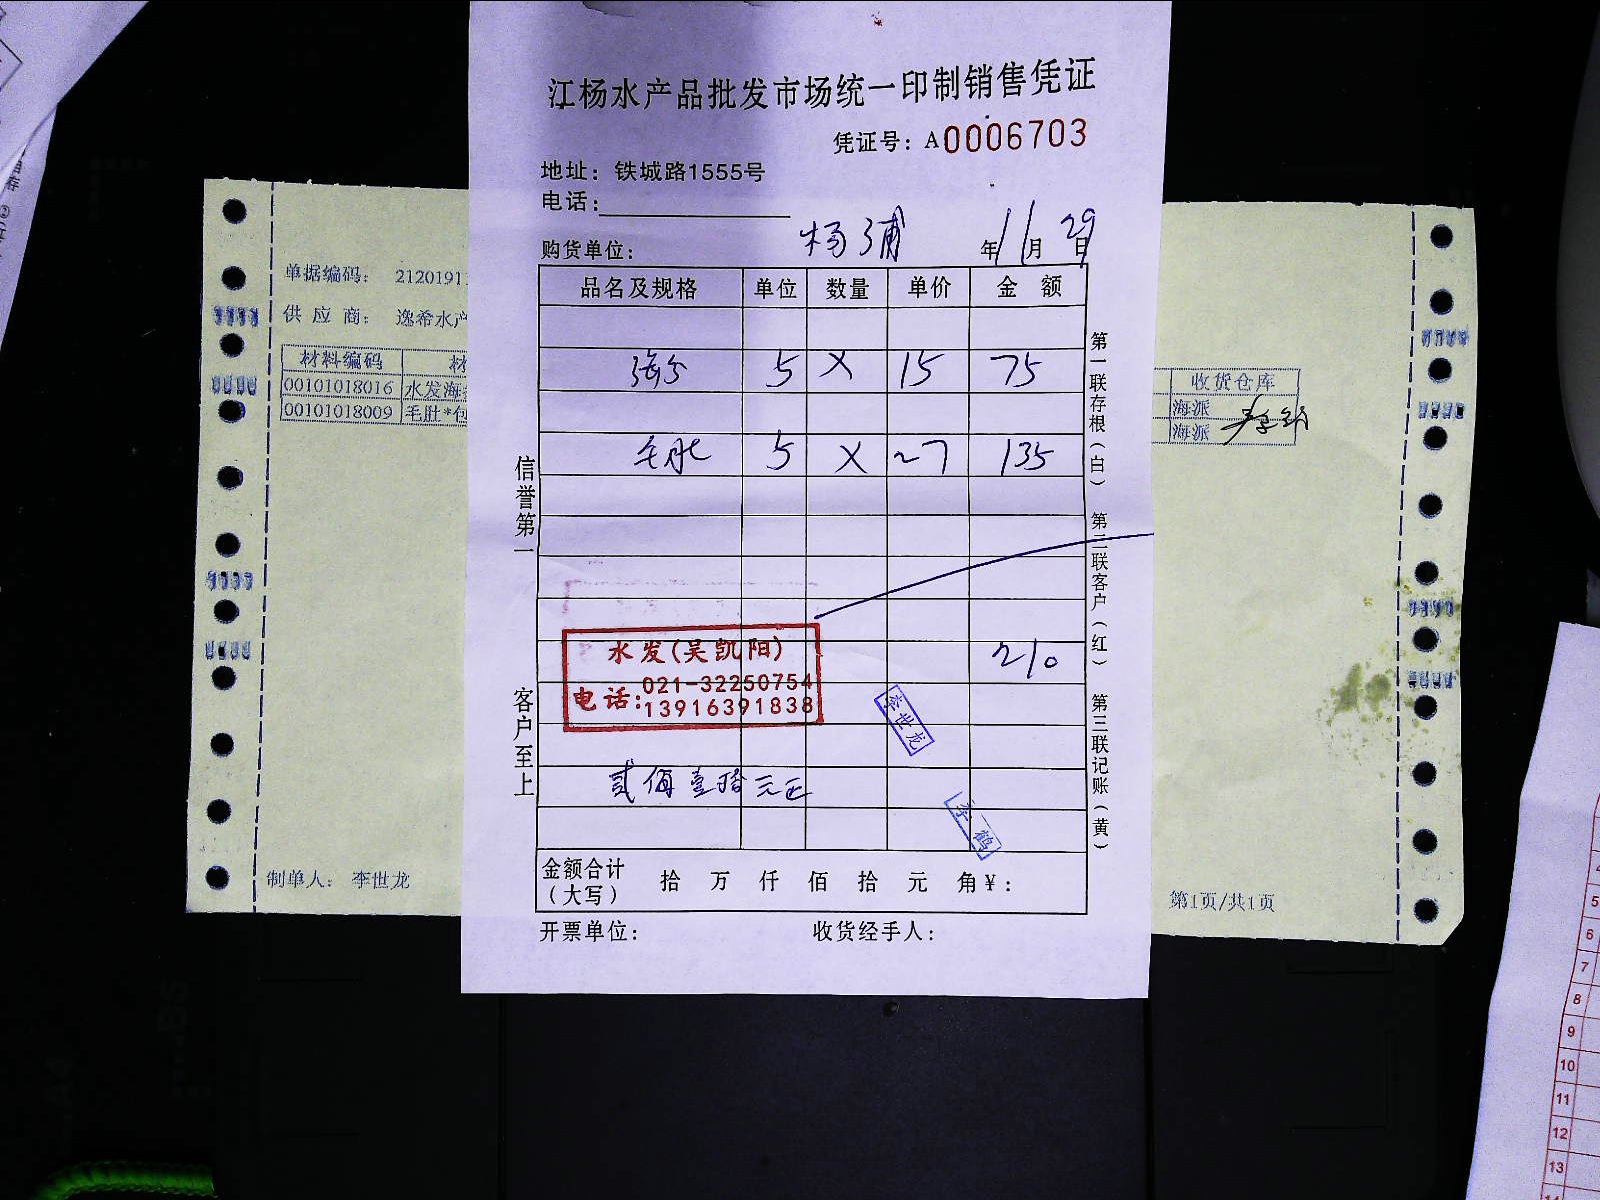 江杨水产品批发市场统一印制销售凭证
凭证号：A0006703
地址：铁城路1555号
电话：
购货单位： 杨浦 年11月29日
品名及规格 单位 数量 单价 金 额
5 X 15 75
毛肚 5 X 27 135
210
水发(吴凯阳)
电话:021-32250754
13916391838
李世龙
贰佰壹拾元正
李鹤
金额合计（大写） 拾 万 仟 佰 拾 元 角￥：
开票单位： 收货经手人：
信誉第一
客户至上
第一联存根（白） 第二联客户（红） 第三联记账（黄）
单据编码： 2120191
供 应 商： 逸希水产
材料编码 材
00101018016 水发海
00101018009 毛肚*包
制单人： 李世龙
收货仓库
海派
海派
第1页/共1页
5
6
7
8
9
10
11
12
13